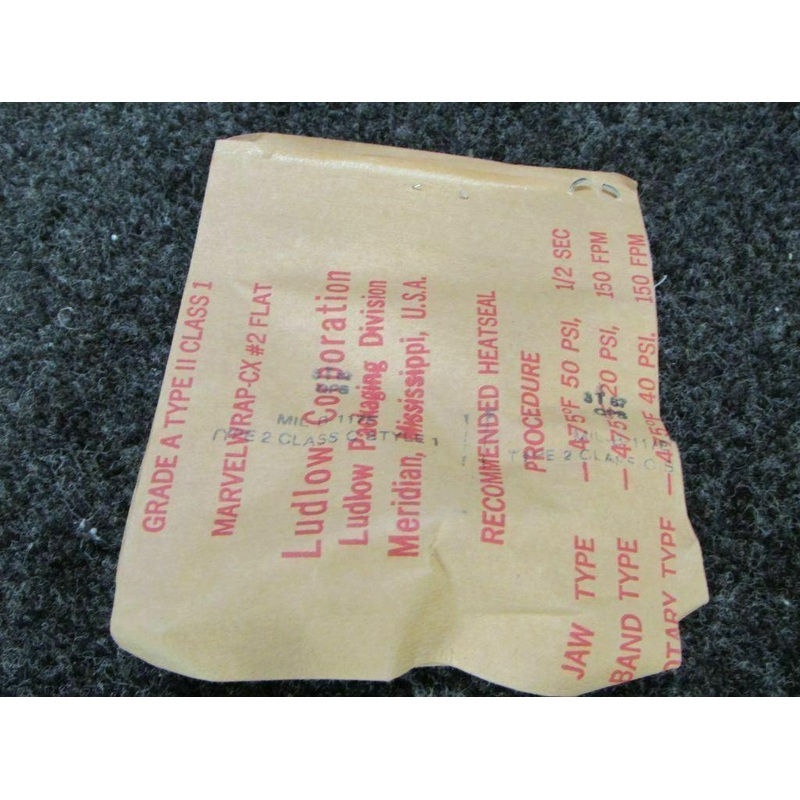 GRADE A TYPE II CLASS 1
MARVELWRAP-CX #2 FLAT
Ludlow Corporation
Ludlow Packaging Division
Meridian, Mississippi, U.S.A.
RECOMMENDED HEATSEAL
PROCEDURE
JAW TYPE —475°F 50 PSI, 1/2 SEC
BAND TYPE —475° 20 PSI, 150 FPM
OTARY TYPE —475°F 40 PSI, 150 FPM
TYPE 2 CLASS C STYLE
TYPE 2 CLASS C S